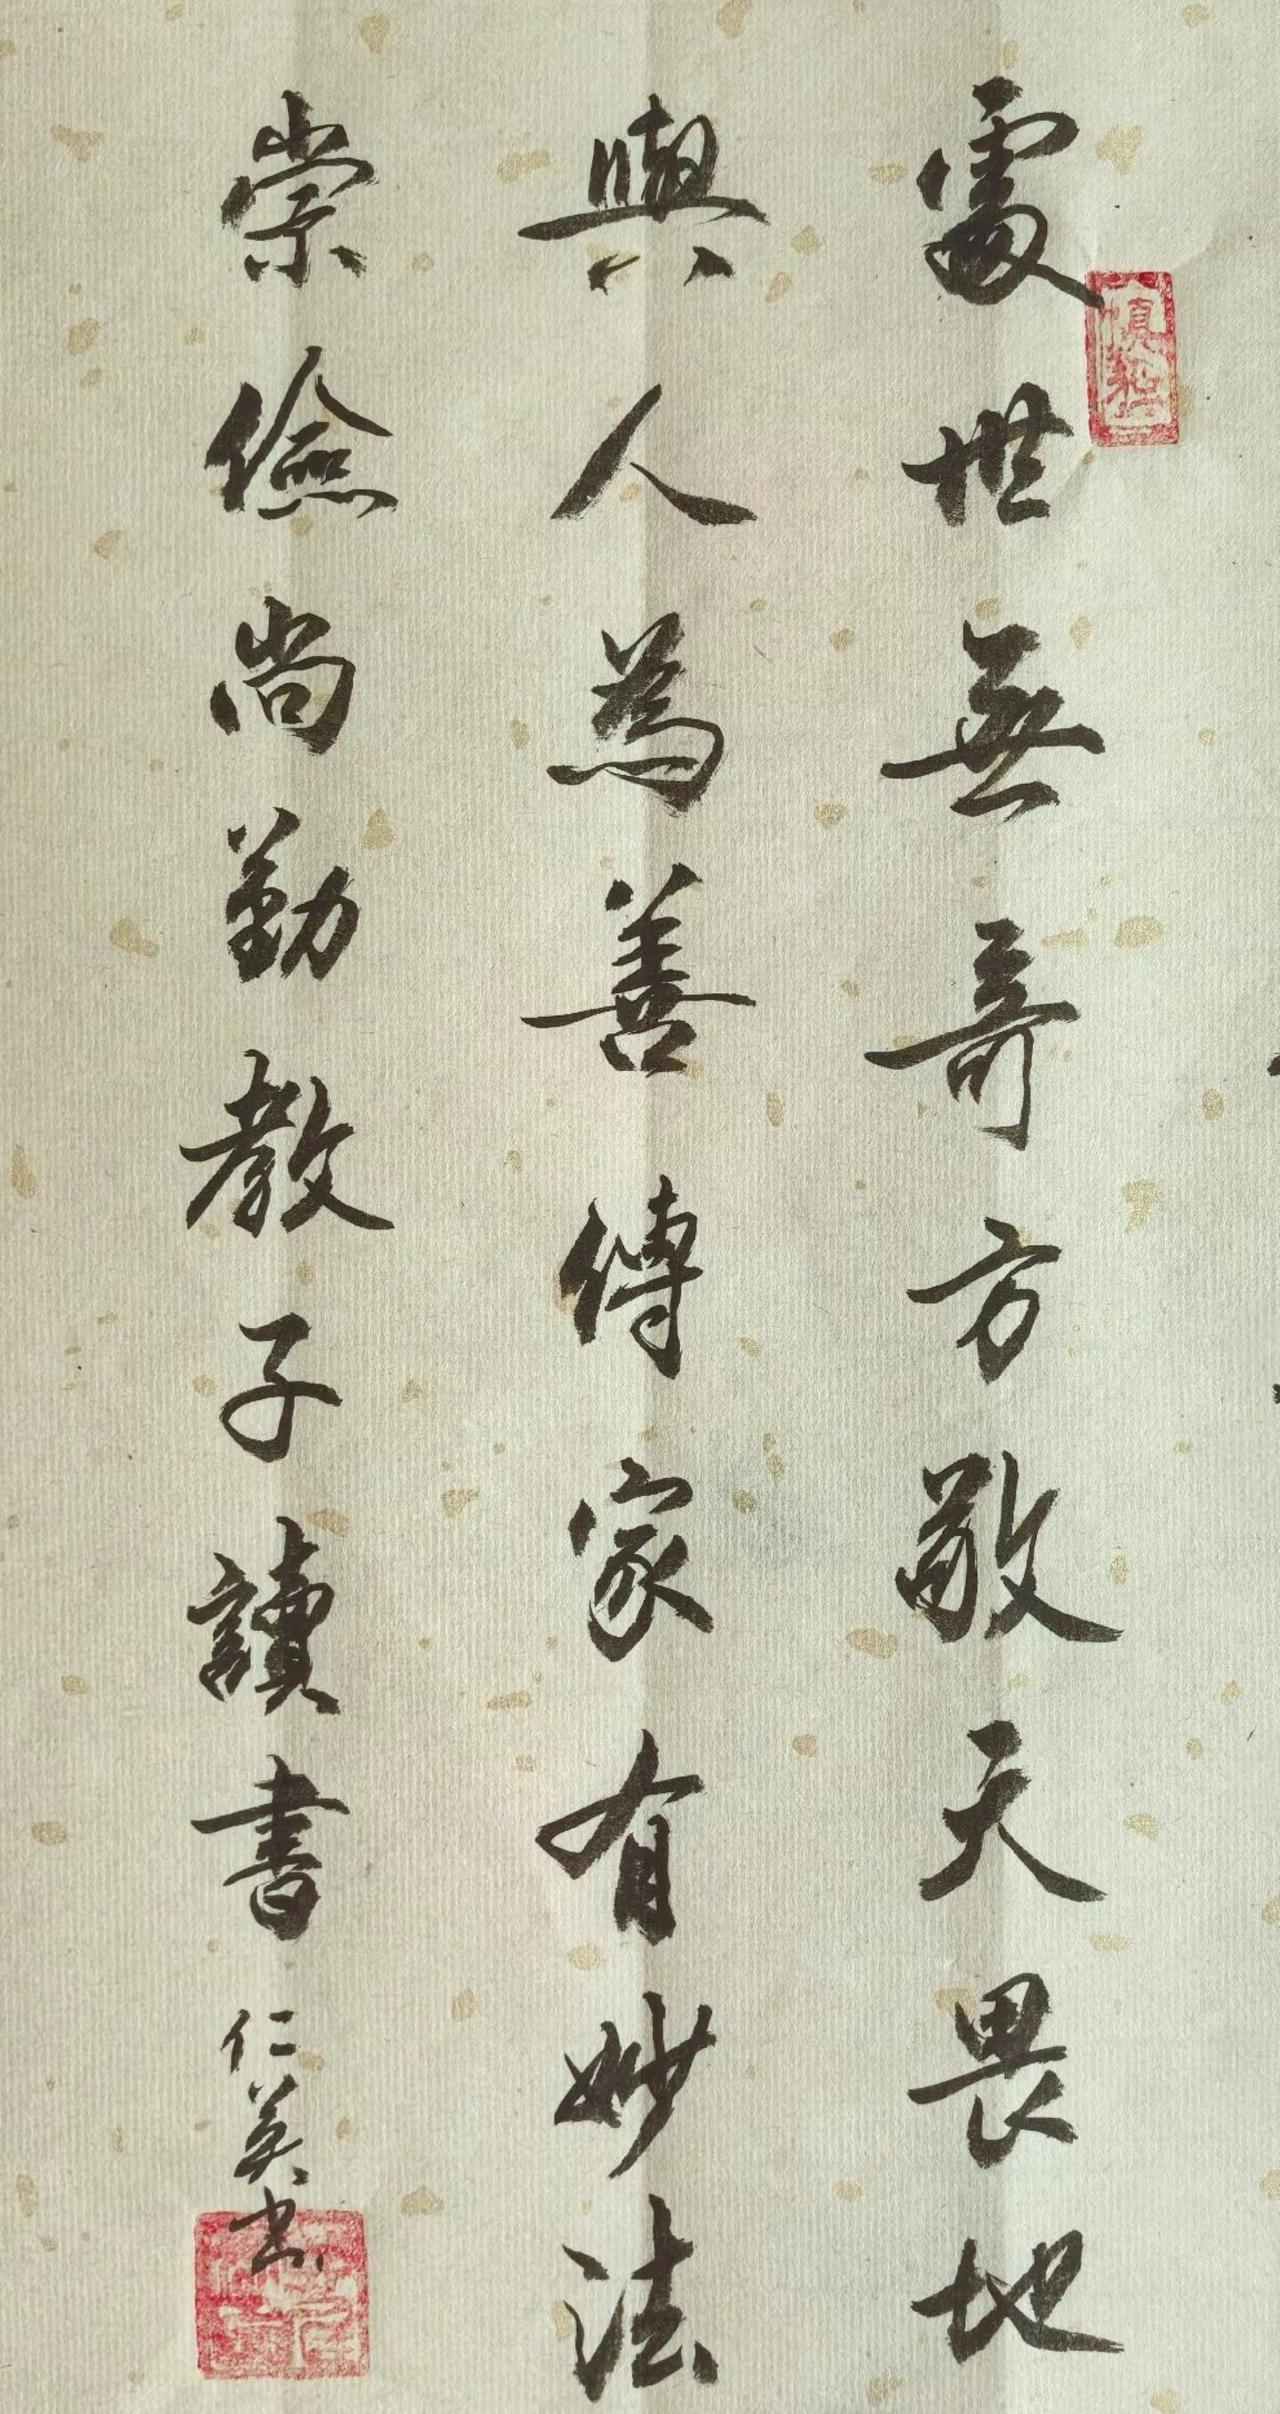 處世無奇方敬天畏地
與人為善傳家有妙法
崇儉尚勤教子讀書
仁英书